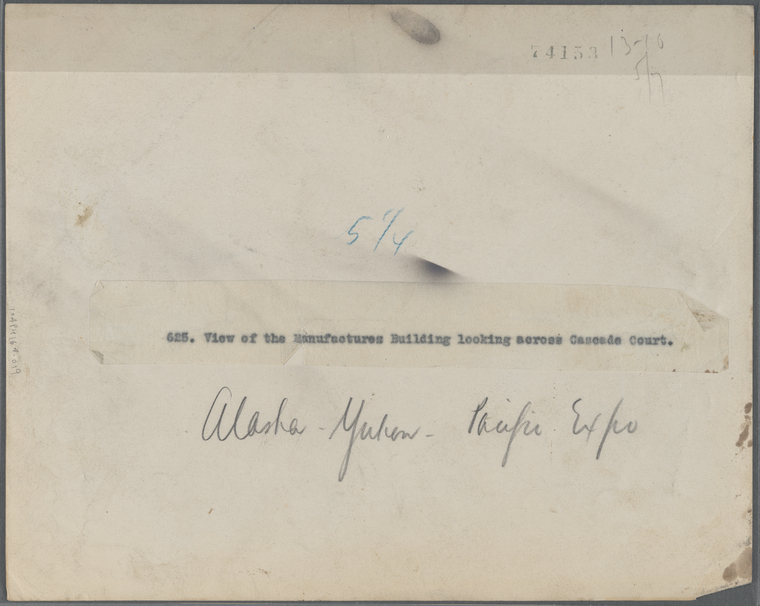 74153
5 1/4
625. View of the Manufactures Building looking across Cascade Court.
Alaska - Yukon - Pacific Expo